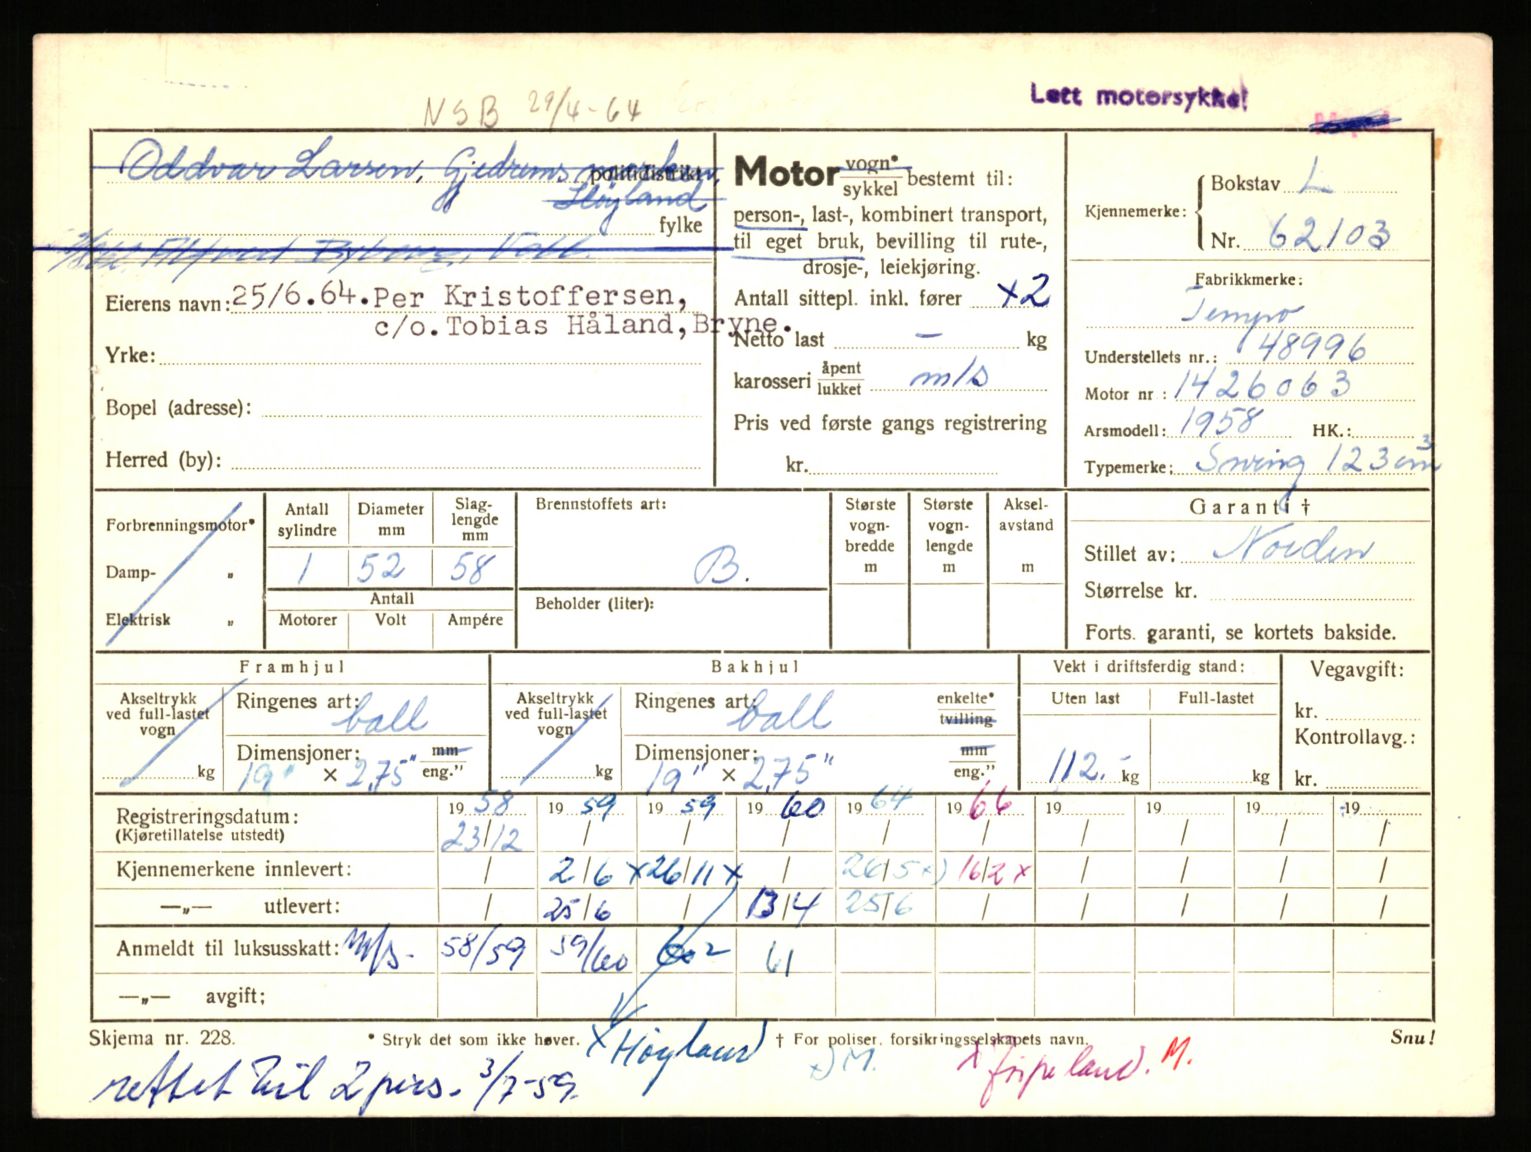 NSB 29/4-64
Lett motorsykkel
Oddvar Larsen, Gjedrems politidistrikt
Høyland
fylke
Alfred
Eierens navn: 25/6.64. Per Kristoffersen,
c/o. Tobias Håland, Bryne.
Yrke:
Bopel (adresse):
Herred (by):
Motor vogn* sykkel bestemt til:
person-, last-, kombinert transport,
til eget bruk, bevilling til rute-,
drosje-, leiekjøring.
Antall sittepl. inkl. fører x2
Netto last – kg
karosseri åpent lukket m/s
Pris ved første gangs registrering
kr.
Kjennemerke: Bokstav L
Nr. 62103
Fabrikkmerke:
Tempo
Understellets nr.: 48996
Motor nr: 1426063
Arsmodell: 1958 HK.:
Typemerke: Swing 123 cm3
Forbrenningsmotor*
Damp- „
Elektrisk „
Antall sylindre
Diameter mm
Slag-lengde mm
1 52 58
Antall
Motorer Volt Ampére
Brennstoffets art:
B.
Beholder (liter):
Største vogn-bredde m
Største vogn-lengde m
Aksel-avstand m
Garanti †
Stillet av: Norden
Størrelse kr.
Forts. garanti, se kortets bakside.
Framhjul
Akseltrykk ved full-lastet vogn kg
Ringenes art: ball
Dimensjoner: mm
19" x 2,75" eng."
Bakhjul
Akseltrykk ved full-lastet vogn kg
Ringenes art: ball
enkelte* tvilling
Dimensjoner: mm
19" x 2,75" eng."
Vekt i driftsferdig stand:
Uten last Full-lastet
112.- kg kg
Vegavgift:
kr.
Kontrollavg.:
kr.
Registreringsdatum: 1958 1959 1959 1960 1964 1966 19 19 19 19
(Kjøretillatelse utstedt) 23/12 / / / / / / / / /
Kjennemerkene innlevert: / 2/6 x 26/11 x / 26/5 x) 16/2 x / / / /
—„— utlevert: / 25/6 / 13/4 25/6 / / / / /
Anmeldt til luksusskatt: M/s. 58/59 59/60 61
—„— avgift:
Skjema nr. 228.
* Stryk det som ikke høver.
† For poliser, forsikringsselskapets navn.
Snu!
x Høyland
) M.
x M.
rettet til 2 pers. 3/7-59.